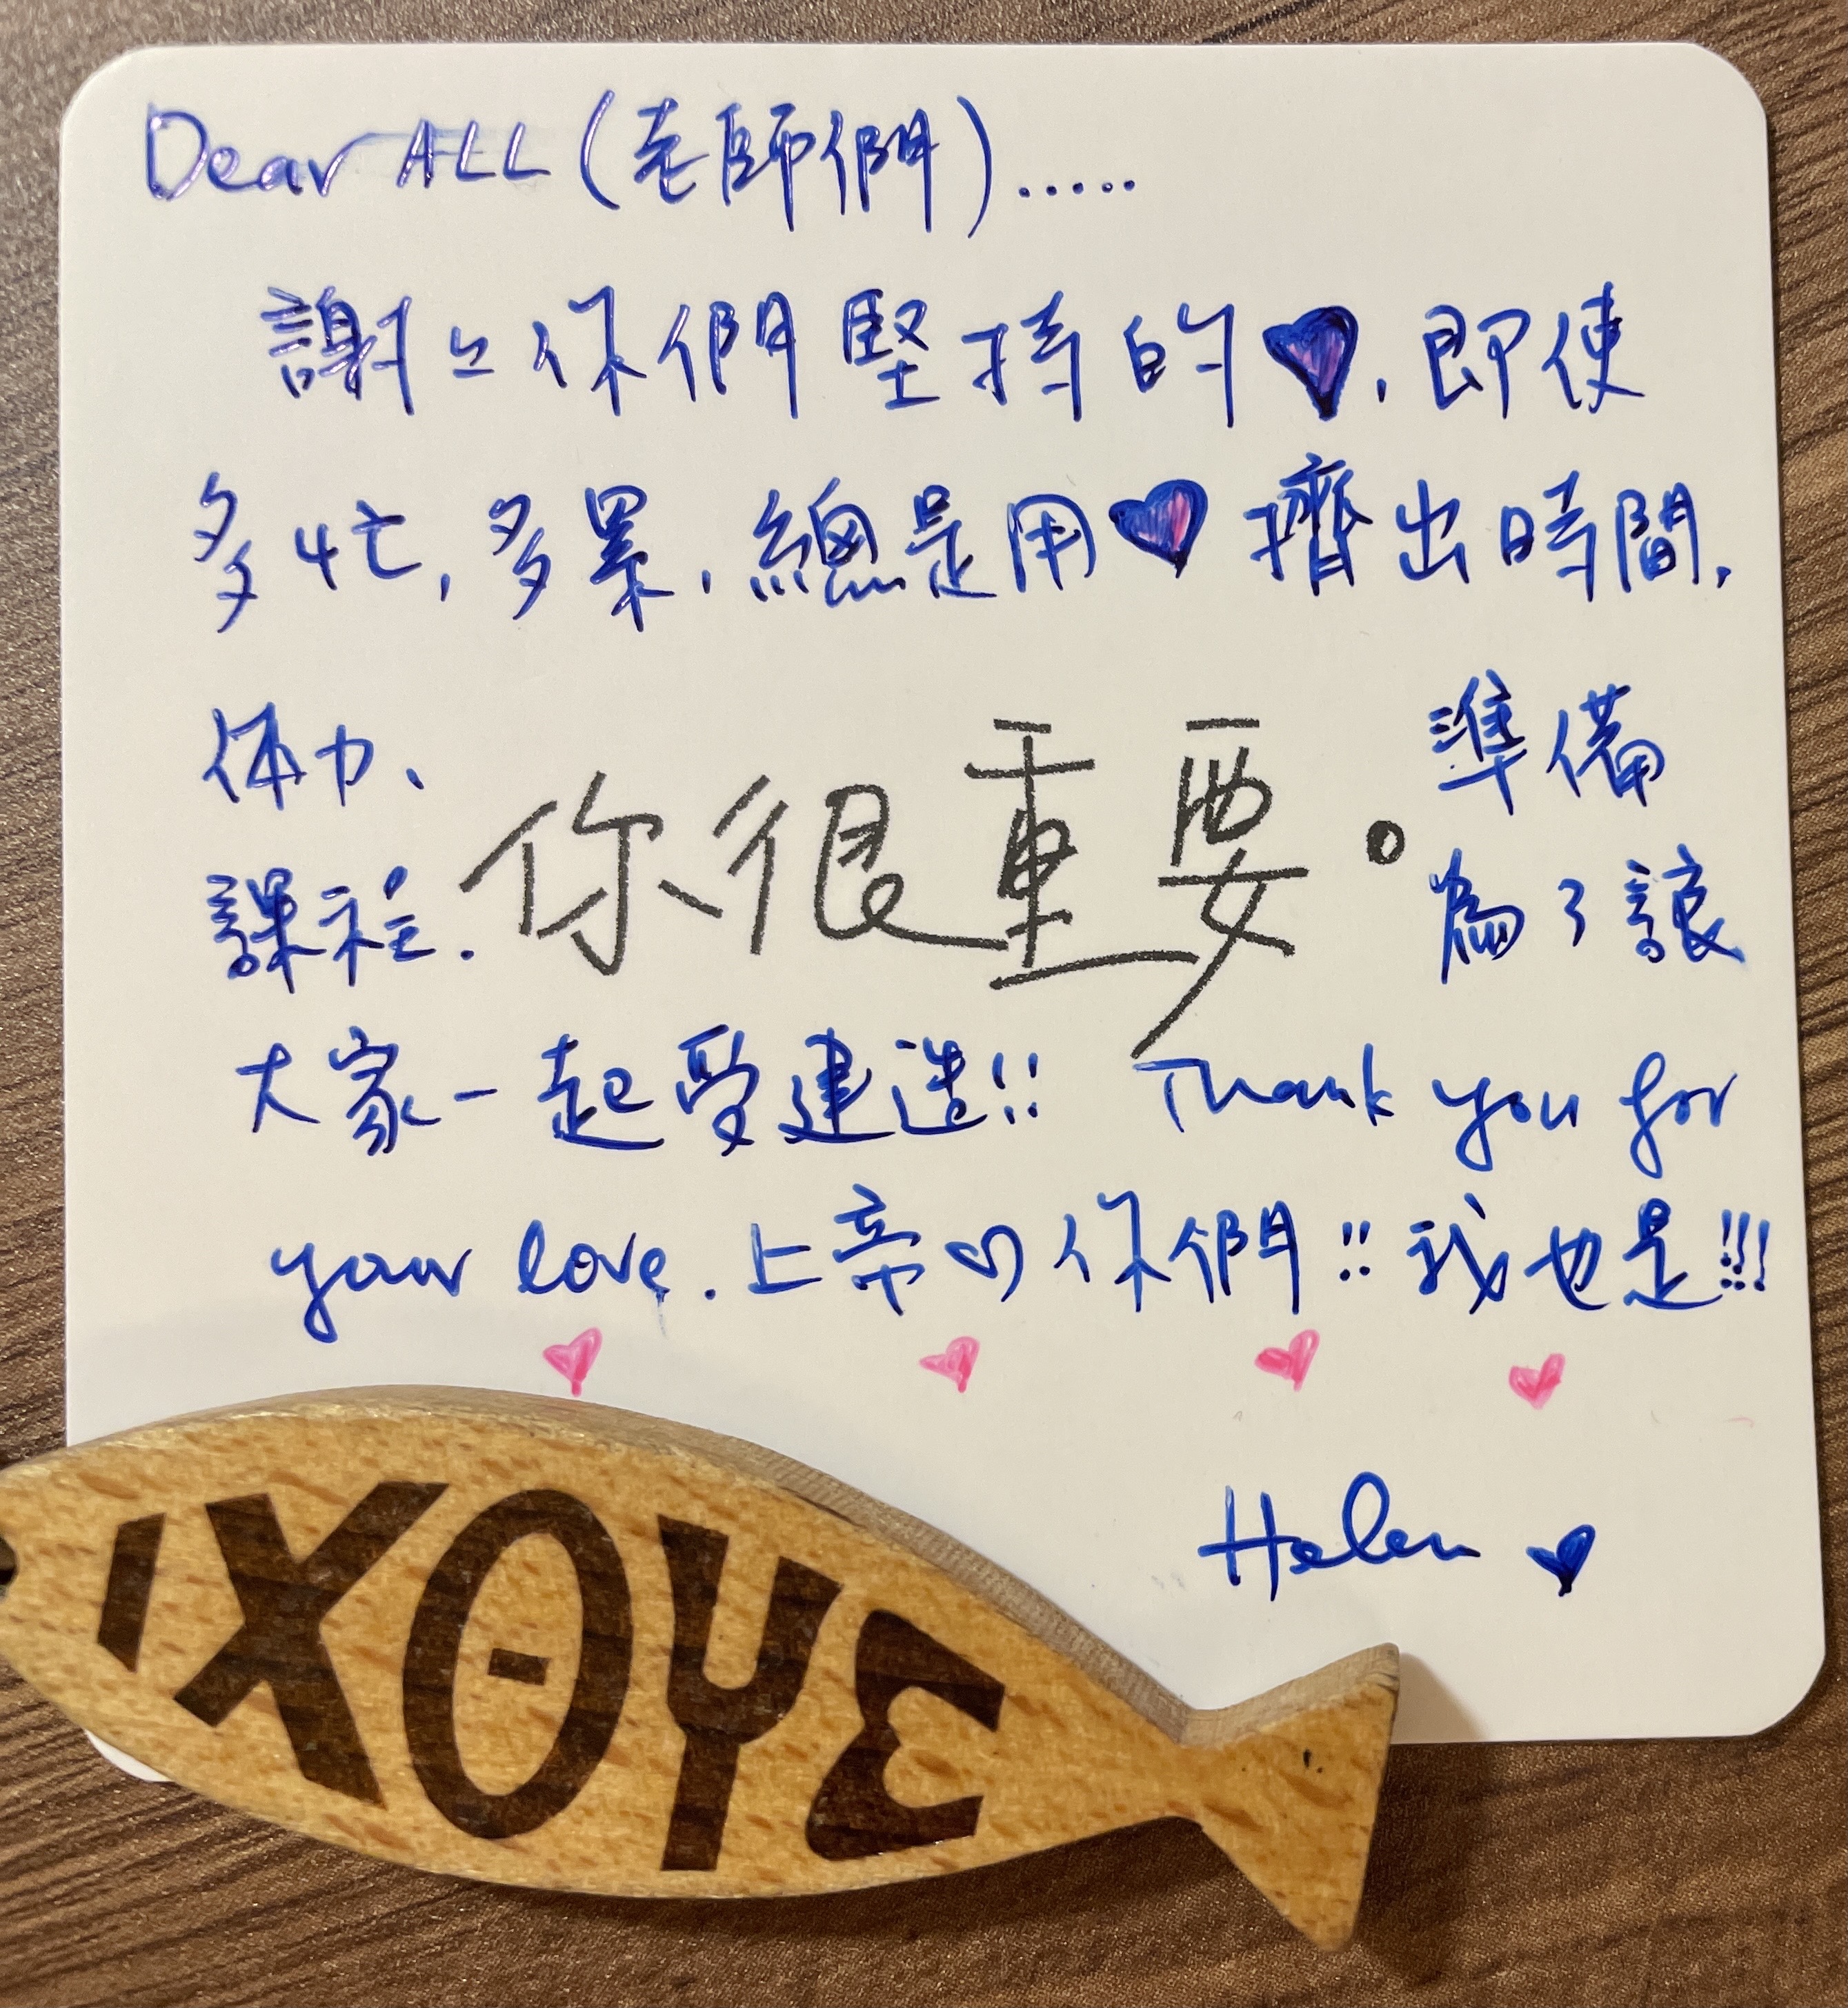 Dear ALL (老師們).....
謝々你們堅持的♥, 即使
多忙, 多累, 總是用♥擠出時間,
体力、 準備
你很重要。
課程. 為了讓
大家一起受建造!! Thank you for
your love. 上帝♡你們!! 我也是!!!
Helen ♥
ΙΧΘΥΣ